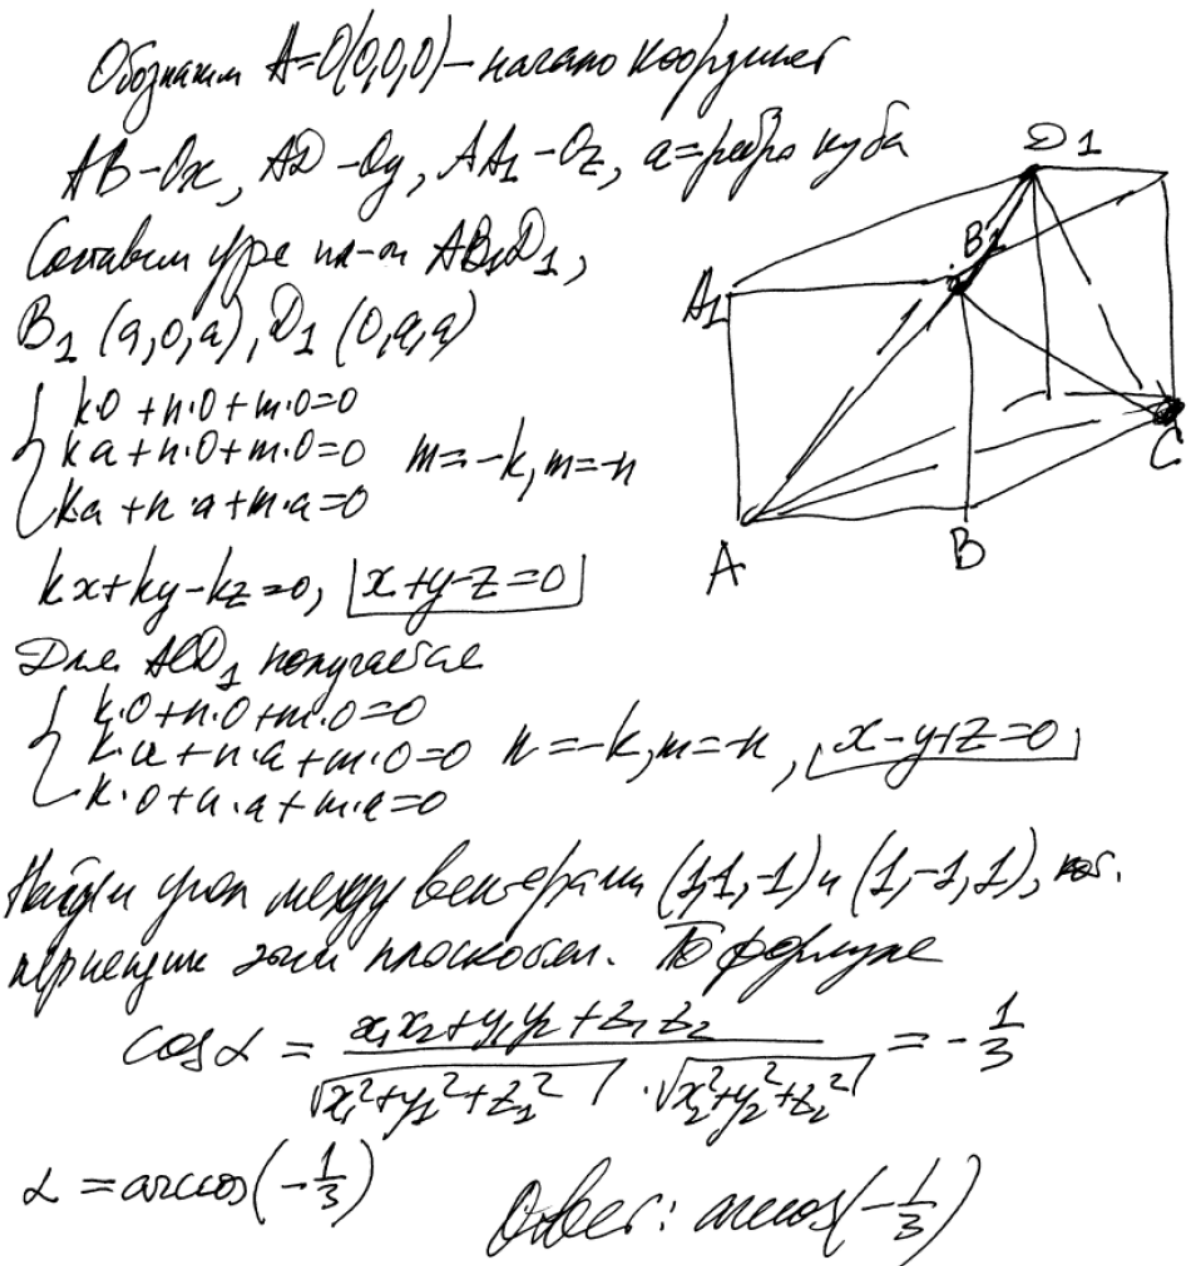 Обозначим A=O(0,0,0) – начало координат
AB–Ox, AD–Oy, AA1–Oz, a=ребро куба
Составим ур-е пл-ти AB1D1,
B1 (a,0,a), D1 (0,a,a)
k·0+n·0+m·0=0
ka+n·0+m·0=0 m=-k, m=-n
k·a+n·a+m·a=0
kx+ky-kz=0, x+y-z=0
Для ACD1 получается
k·0+n·0+m·0=0
k·a+n·a+m·0=0 n=-k, m=-n, x-y+z=0
k·0+n·a+m·a=0
Найдём угол между векторами (1,1,-1) и (1,-1,1),
этим плоскостям. По формуле
cosα = (x1x2+y1y2+z1z2)/(√(x1²+y1²+z1²)·√(x2²+y2²+z2²)) = -1/3
α=arccos(-1/3)
Ответ: arccos(-1/3)
D1
B1
A1
C
A
B